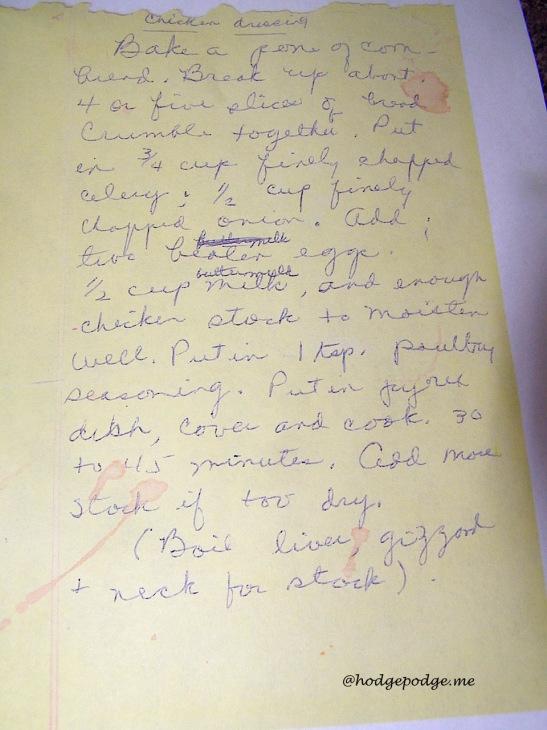 Chicken dressing
Bake a pone of corn-
bread. Break up about
4 or five slices of bread
Crumble together. Put
in 3/4 cup finely chopped
celery; 1/2 cup finely
chopped onion. Add;
buttermilk
two beaten eggs.
buttermilk
1/2 cup milk, and enough
chicken stock to moisten
well. Put in 1 tsp. poultry
seasoning. Put in pyrex
dish, cover and cook. 30
to 45 minutes. Add more
stock if too dry.
(Boil liver, gizzard
+ neck for stock).
@hodgepodge.me